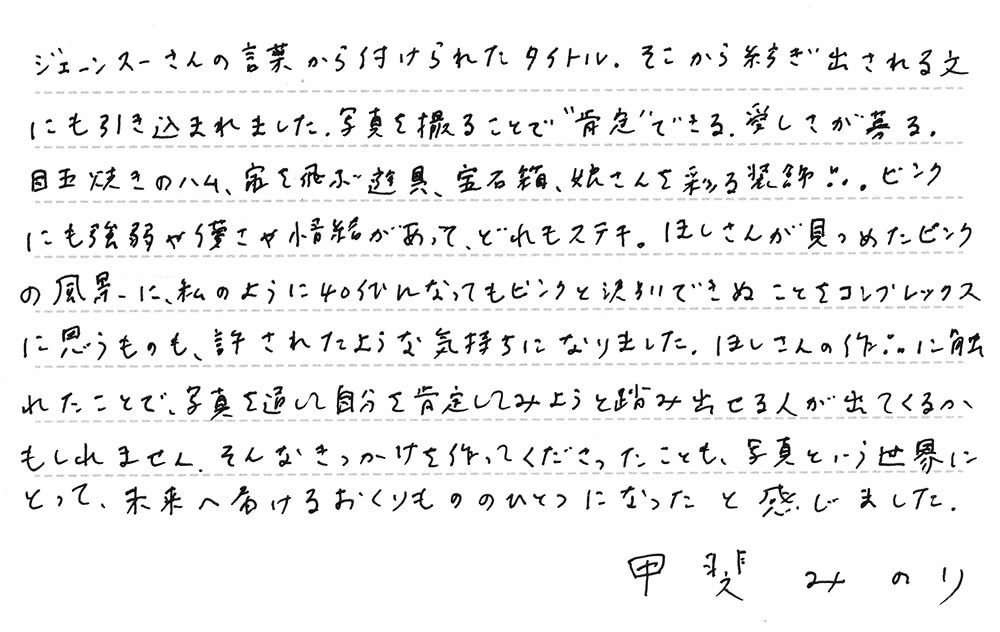 ジェーンスーさんの言葉から付けられたタイトル。そこから紡ぎ出される文
にも引き込まれました。写真を撮ることで"肯定"できる。愛しさが募る。
目玉焼きのハム、宙を飛ぶ遊具、宝石箱、娘さんを彩る装飾品…。ピンク
にも強弱や儚さや情緒があって、どれもステキ。ほしさんが見つめたピンク
の風景に、私のように40代になってもピンクと決別できぬことをコンプレックス
に思うものも、許されたような気持ちになりました。ほしさんの作品に触
れたことで、写真を通して自分を肯定してみようと踏み出せる人が出てくるか
もしれません。そんなきっかけを作ってくださったことも、写真という世界に
とって、未来へ届けるおくりもののひとつになったと感じました。
甲斐みのり